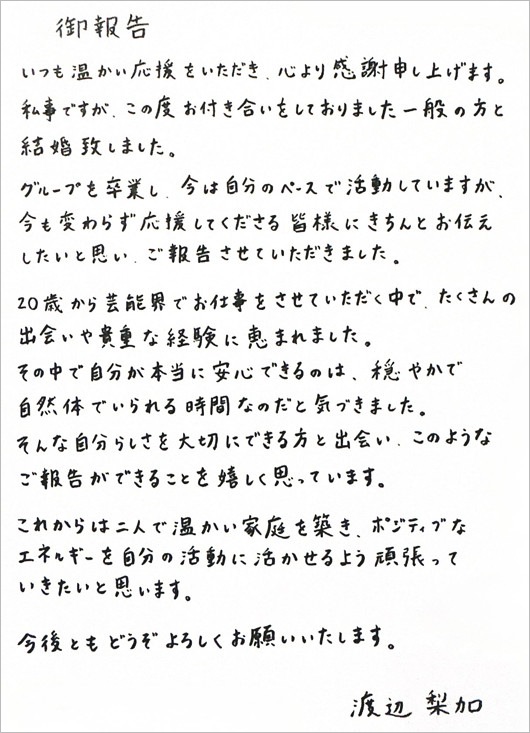 御報告
いつも温かい応援をいただき、心より感謝申し上げます。
私事ですが、この度お付き合いをしておりました一般の方と
結婚致しました。
グループを卒業し、今は自分のペースで活動していますが、
今も変わらず応援してくださる皆様にきちんとお伝え
したいと思い、ご報告させていただきました。
20歳から芸能界でお仕事をさせていただく中で、たくさんの
出会いや貴重な経験に恵まれました。
その中で自分が本当に安心できるのは、穏やかで
自然体でいられる時間なのだと気づきました。
そんな自分らしさを大切にできる方と出会い、このような
ご報告ができることを嬉しく思っています。
これからは二人で温かい家庭を築き、ポジティブな
エネルギーを自分の活動に活かせるよう頑張って
いきたいと思います。
今後ともどうぞよろしくお願いいたします。
渡辺 梨加